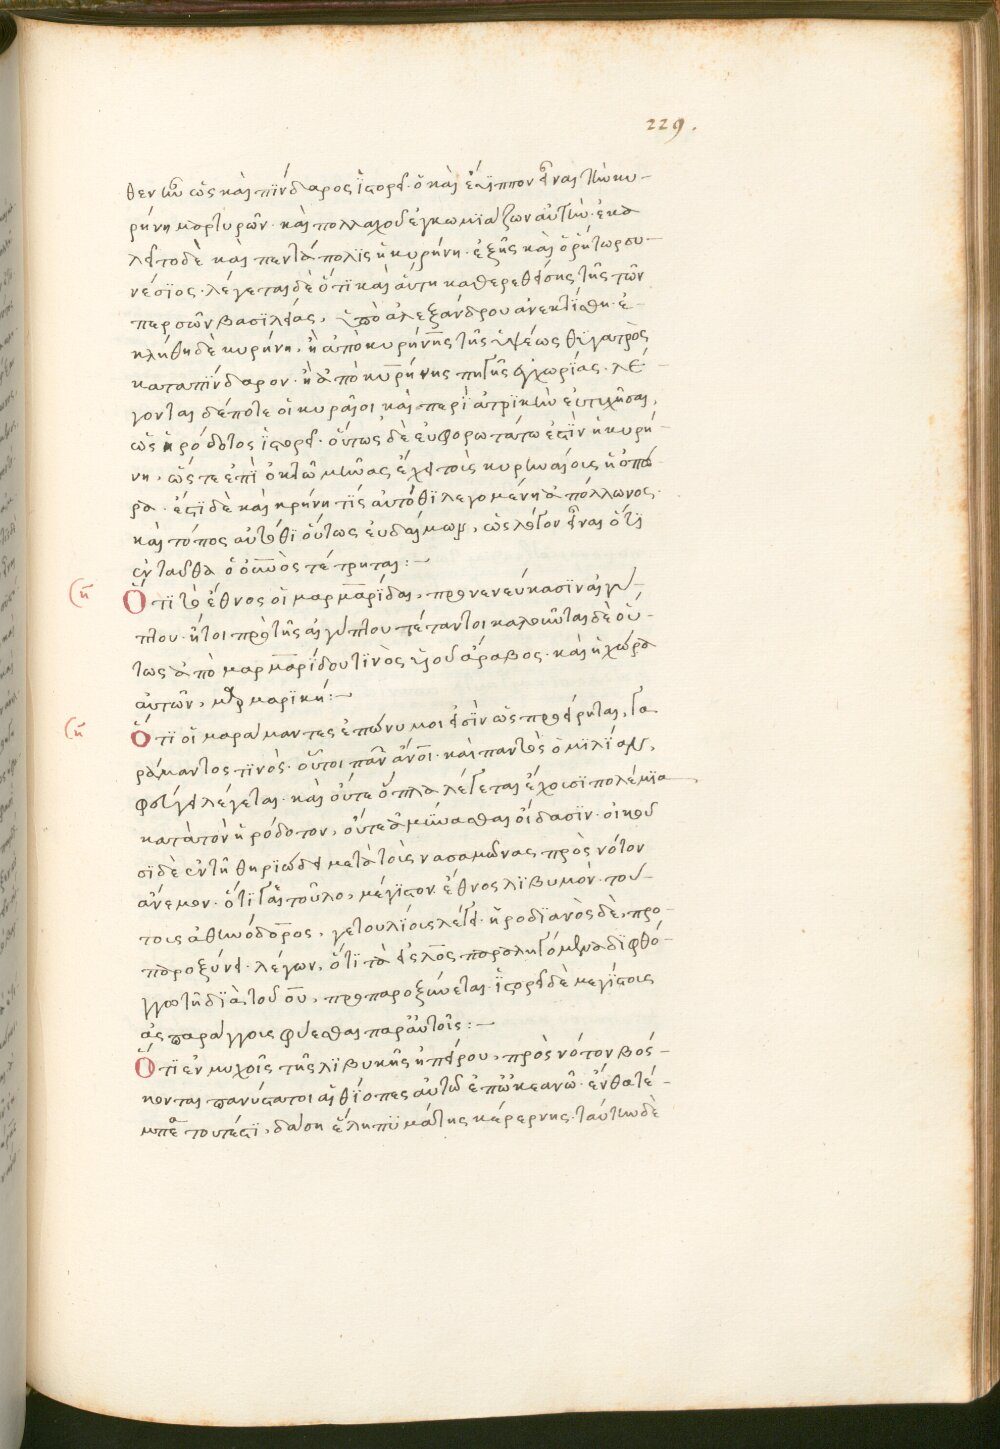 229.
θεν ὢν ὡς καὶ πίνδαρος ἱστορεῖ· ὃ καὶ εὔϊππον εἶναι τὴν κυ-
ρήνην μαρτυρῶν· καὶ πολλαχοῦ ἐγκωμιάζων αὐτήν· ἐκα
λεῖτο δὲ καὶ πεντάπολις ἡ κυρήνη· ἐξ ἧς καὶ ὁ ῥήτωρ συ-
νέσιος· λέγεται δὲ ὅτι καὶ αὕτη καθαιρεθείσης τῆς τῶν
περσῶν βασιλείας, ὑπὸ ἀλεξάνδρου ἀνεκτίσθη· ἐ-
κλήθη δὲ κυρήνη, ἢ ἀπὸ κυρήνης τῆς ὑψέως θυγατρὸς
κατὰ πίνδαρον· ἢ ἀπὸ κυρήνης πηγῆς ἐγχωρίας· λέ-
γονται δέ ποτε οἱ κυραῖοι καὶ περὶ ἀτρικὴν εὐτυχῆσαι,
ὡς ἡρόδοτος ἱστορεῖ· οὕτως δὲ εὐφορωτάτω ἐστὶν ἡ κυρή-
νη, ὥς τε ἐπὶ ὀκτὼ μῆνας ἔχει τοῖς κυρηναίοις ἡ ὀπώ-
ρα· ἔστι δὲ καὶ κρήνη τίς αὐτόθι λεγομένη ἀπόλλωνος·
καὶ τόπος αὐτόθι οὕτως εὐδαίμων, ὡς λόγον εἶναι ὅτι
ἐνταῦθα ὁ οὐνὸς τέτρηται:-
Ὅτι τὸ ἔθνος οἱ μαρμαρίδαι, προνενεύκασιν αἰγύ-
πτου· ἤτοι πρὸ τῆς αἰγύπτου τέτανται καλοῦνται δὲ οὕ-
τως ἀπὸ μαρμαρίδου τινὸς υἱοῦ ἄραβος· καὶ ἡ χώρα
αὐτῶν, μαρμαρική:-
Ὅτι οἱ γαράμαντες ἐπώνυμοι εἰσὶν ὡς προείρηται, γα
ράμαντος τινὸς· οὗτοι πᾶν ἄνον· καὶ παντὸς ὁμιλίαν,
φεύγει λέγεται· καὶ οὔτε ὅπλα λέγεται ἔχουσι πολέμια
κατὰ τὸν ἡρόδοτον, οὔτε ἀμύνασθαι οἴδασιν· οἰκοῦ
σι δὲ ἐν τῇ θηριώδει μετὰ τοὺς νασαμῶνας πρὸς νότον
ἄνεμον· ὅτι γὰρ τοῦτο, μέγιστον ἔθνος λιβυκὸν· τού-
τοις ἀθηνόδορος, γετουλίοις λέγει· ἡροδιανὸς δὲ, προ-
παροξύνει· λέγων, ὅτι τὰ εἰς λος παραληγόμενα διφθό-
γγω τῇ διὰ τοῦ ου, προπαροξύνεται· ἱστορεῖ δὲ μεγίστοις
ἀσπαράγγοις φύεσθαι παρ' αὐτοῖς:-
Ὅτι ἐν μυχοῖς τῆς λιβυκῆς ἠπείρου, πρὸς νότον βόσ-
κονται πανύστατοι αἰθίοπες αὐτῷ ἐπ' ὠκεανῷ· ἔνθα τέ-
μπεα τουτέστι, δάση ἕλη πυμάτης κέρρης· ταύτην δὲ